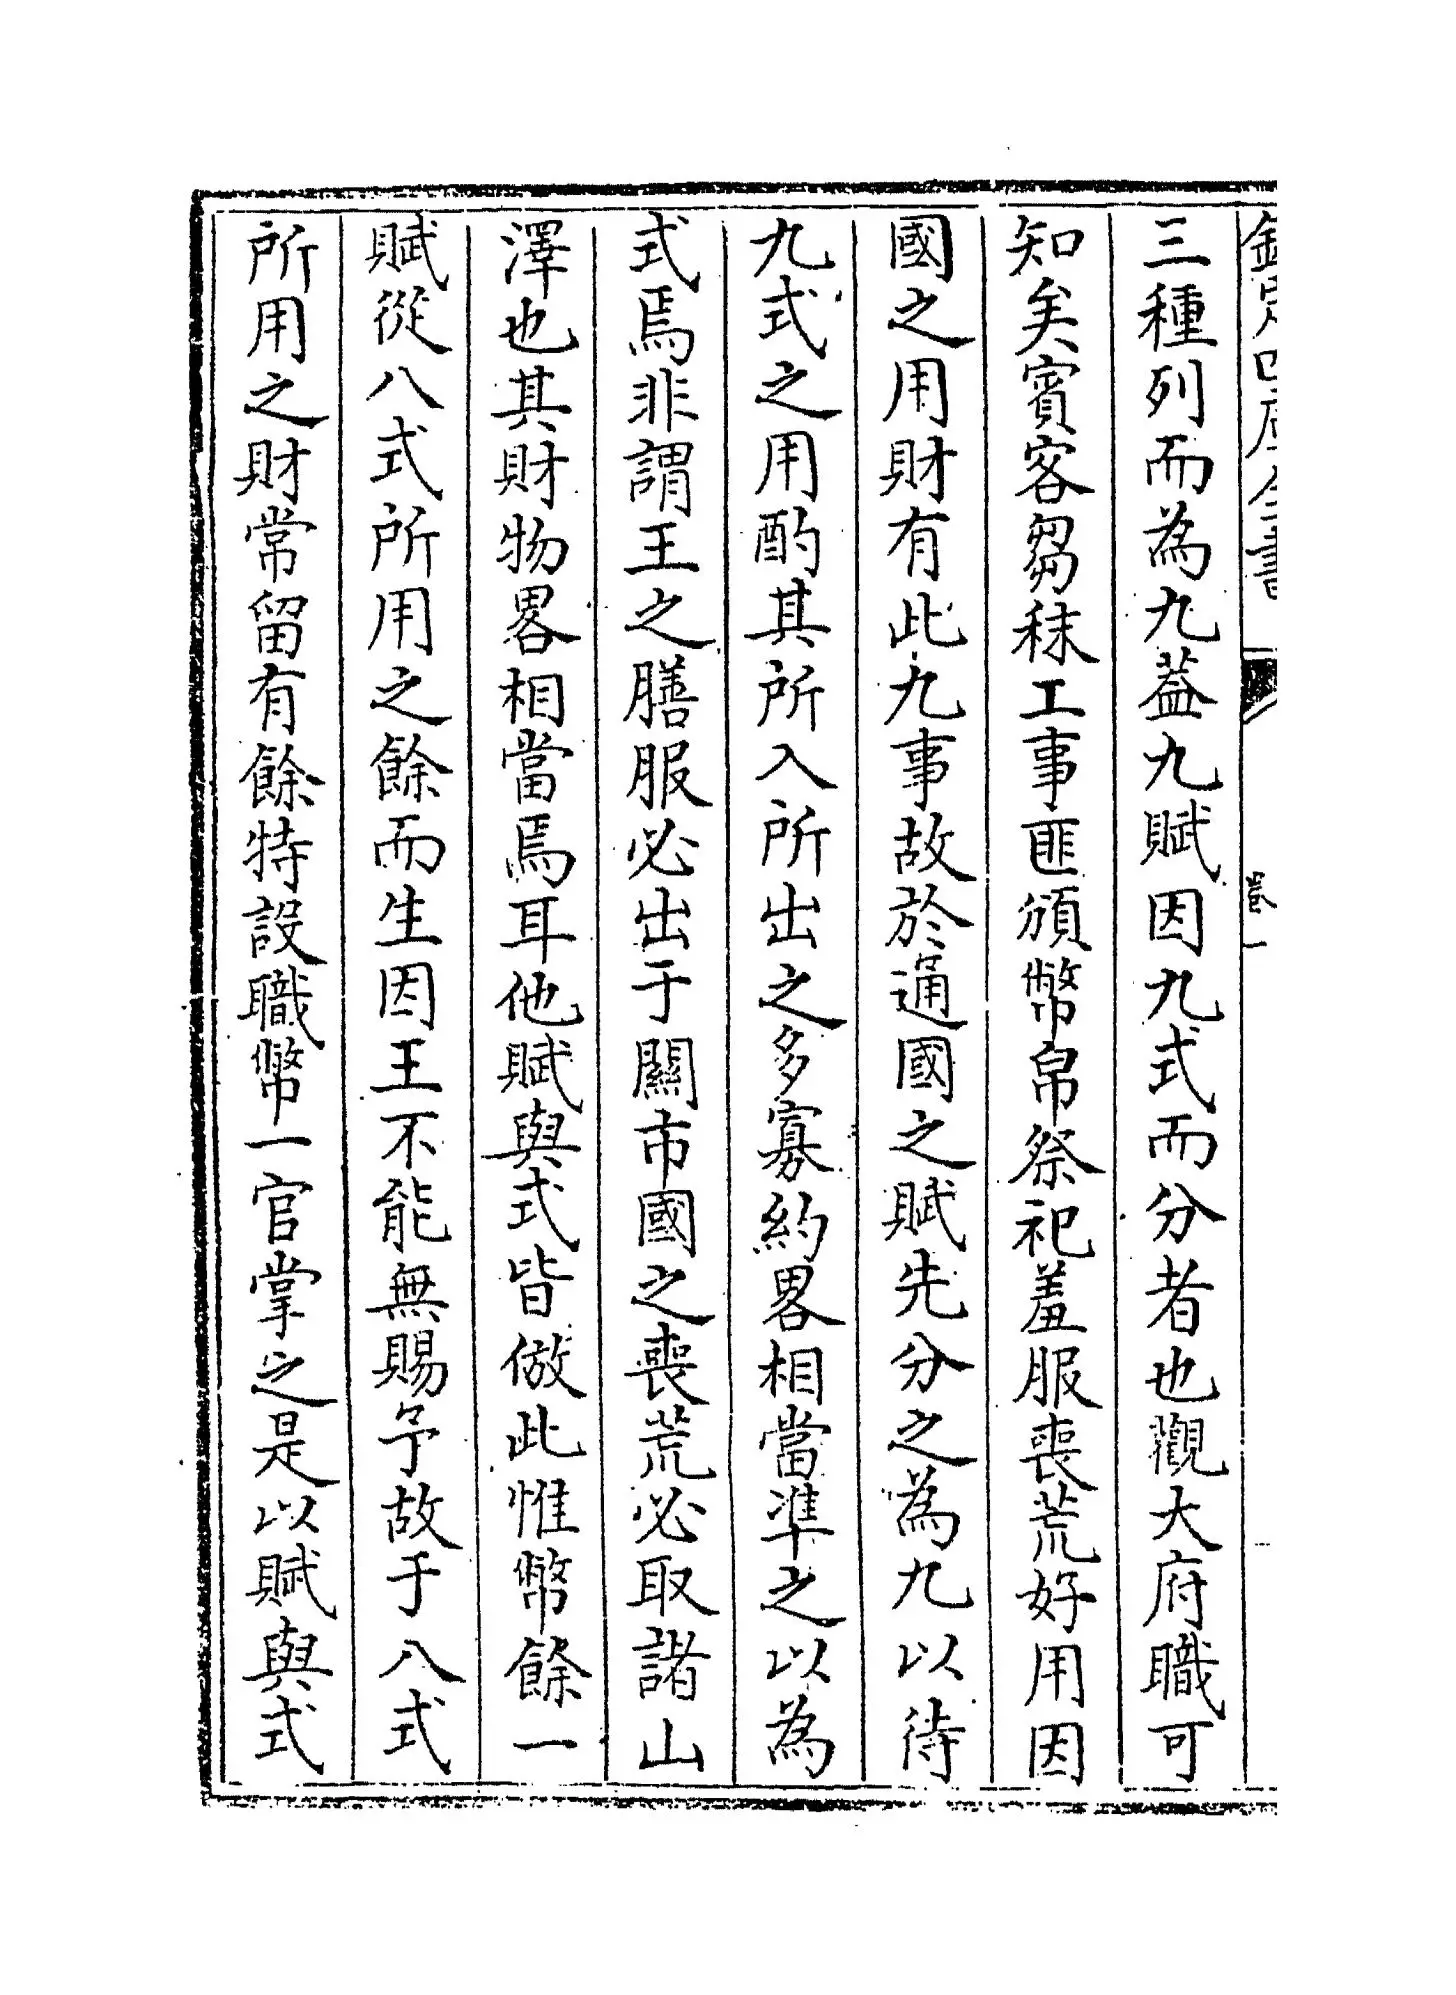 欽定四庫全書
卷一
三種列而為九蓋九賦因九式而分者也觀大府職可
知矣賓客芻秣工事匪頒幣帛祭祀羞服喪荒好用因
國之用財有此九事故於通國之賦先分之為九以待
九式之用酌其所入所出之多寡約畧相當準之以為
式焉非謂王之膳服必出于關市國之喪荒必取諸山
澤也其財物畧相當焉耳他賦與式皆倣此惟幣餘一
賦從八式所用之餘而生因王不能無賜予故于八式
所用之財常留有餘特設職幣一官掌之是以賦與式